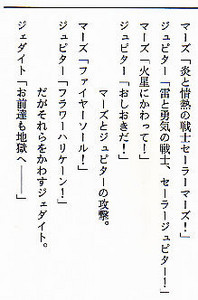 マーズ「炎と情熱の戦士セーラーマーズ!」
ジュピター「雷と勇気の戦士、セーラージュピター!」
マーズ「火星にかわって!」
ジュピター「おしおきだ!」
マーズとジュピターの攻撃。
マーズ「ファイヤーソール!」
ジュピター「フラワーハリケーン!」
だがそれらをかわすジェダイト。
ジェダイト「お前達も地獄へ――」